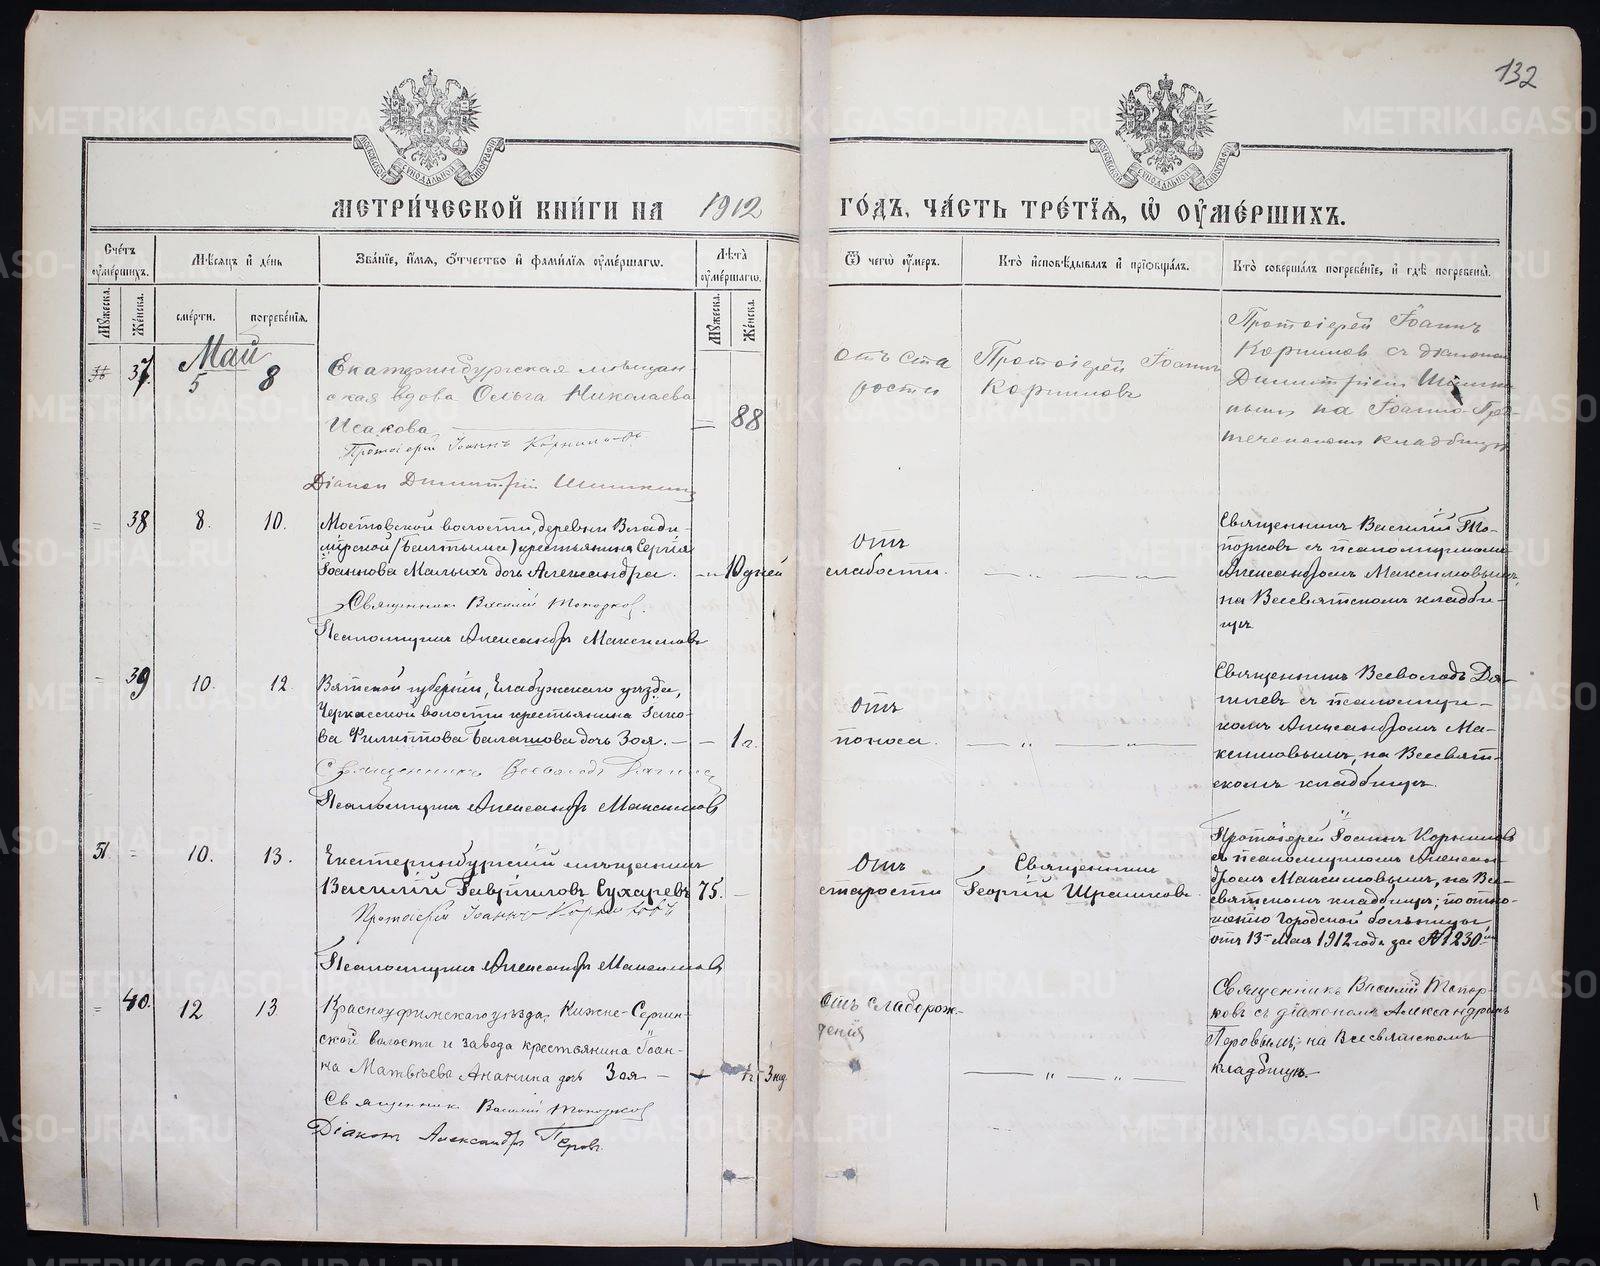 132
МЕТРИ́ЧЕСКОЙ КНИ́ГИ НА 1912 ГО́ДЪ, ЧА́СТЬ ТРЕ́ТЇѦ, Ѿ ОУМЕ́РШИХЪ.
Сче́тъ оуме́ршихъ.
Мꙋжеска.
Же́нска.
Мѣ́сѧцъ и҆ де́нь
сме́рти.
погребе́нїѧ.
Зва́нїе, и҆́мѧ, ѻ҆́тчество и҆ фами́лїѧ оуме́ршагѡ.
Лѣ́та оуме́ршагѡ.
Мꙋжеска.
Же́нска.
Ѿ чегѡ̀ оу҆́меръ.
Кто̀ и҆сповѣ́дывалъ и҆ прїѡбща́лъ.
Кто̀ соверша́лъ погребе́нїе, и҆ гдѣ̀ погребены̀.
Май
37. 5 8
Екатеринбургская мѣщан-
ская вдова Ольга Николаева
Исакова
88
Протоіерей Іоаннъ Корниловъ
Діакон Димитрій Шишкин
отъ ста
рости
Протоіерей Іоаннъ
Корниловъ
Протоіерей Іоаннъ
Корнилов съ діаконом
Димитріем
на Іоанно-Пред-
теченском кладбищѣ
38 8. 10.
Мостовской волости, деревни Влади-
мірской (Балтыма) крестьянина Сергія
Іоаннова Малыхъ дочь Александра.
10 дней
Священникъ Василій Топорков.
Псаломщикъ Александръ Максимовъ
отъ
слабости.
Священникъ Василій То-
порковъ съ псаломщикомъ
Александромъ Максимовымъ,
на Всесвятскомъ кладби-
щѣ
39 10. 12
Вятской губерніи, Елабужскаго уѣзда,
Черкасской волости крестьянина Іако-
ва Филиппова Балашова дочь Зоя.
1 г.
Священникъ Всеволодъ
Псаломщикъ Александръ Максимов
отъ
поноса.
Священникъ Всеволодъ
съ псаломщи-
комъ Александромъ Ма-
ксимовымъ, на Всесвят-
скомъ кладбищѣ.
51. = 10. 13.
Екатеринбургскій мѣщанинъ
Василій Гавріиловъ Сухаревъ
75.
Протоіерей Іоаннъ Корнилов
Псаломщикъ Александръ Максимов
отъ
старости
Священник
Георгій
Протоіерей Іоаннъ Корнилов
съ псаломщикомъ Алексан-
дромъ Максимовымъ, на Все-
святскомъ кладбищѣ; по отно-
шенію Городской больницы
отъ 13 Мая 1912 года за № 1230
= 40. 12 13
Красноуфимскаго уѣзда, Нижне-Сергин-
ской волости и завода крестьянина Іоан-
на Матвѣева Ананина дочь Зоя
3 нед
Священникъ Василій Топорков
Діаконъ Александръ Перов.
отъ слаборож-
денія
Священникъ Василій Топор-
ковъ съ діакономъ Александромъ
Перовымъ; на Всесвятскомъ
кладбищѣ.
METRIKI.GASO-URAL.RU